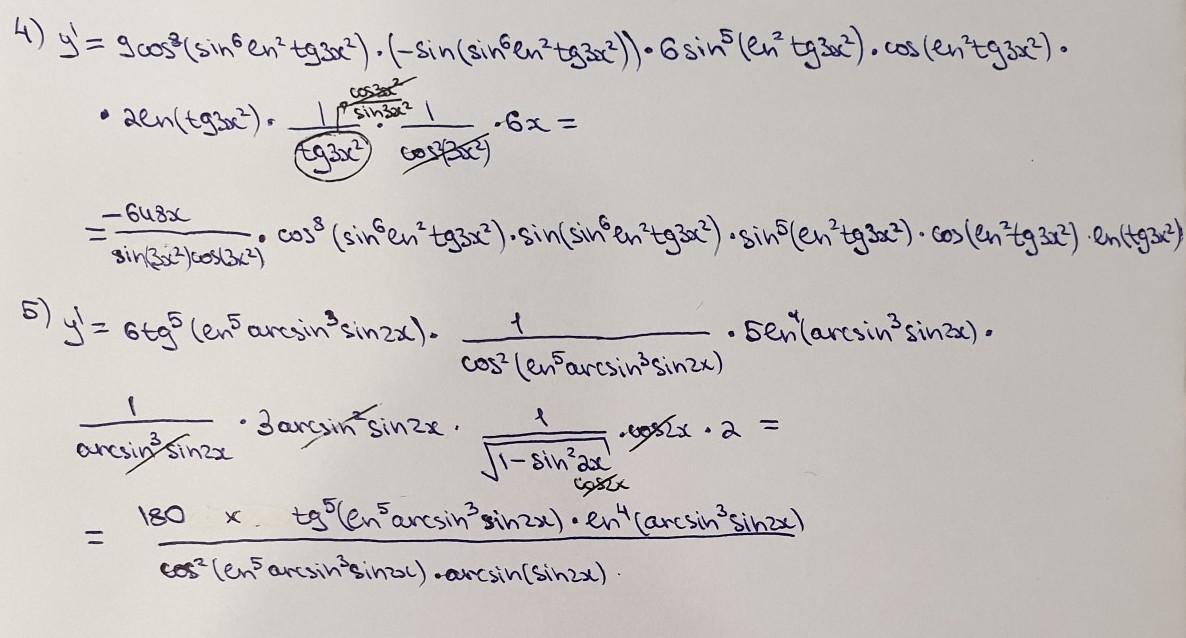 4) y' = 9cos⁸(sin⁶ln²tg3x²)·(-sin(sin⁶ln²tg3x²))·6sin⁵(ln²tg3x²)·cos(ln²tg3x²)·
· 2ln(tg3x²)· 1/tg3x² cos3x²/sin3x² · 1/cos²(3x²) ·6x =
= -648x/sin(3x²)cos(3x²) · cos⁸(sin⁶ln²tg3x²)·sin(sin⁶ln²tg3x²)·sin⁵(ln²tg3x²)·cos(ln²tg3x²)·ln(tg3x²)
5) y' = 6tg⁵(ln⁵arcsin³sin2x)· 1/cos²(ln⁵arcsin³sin2x) ·5ln⁴(arcsin³sin2x)·
1/arcsin³sin2x ·3arcsin²sin2x· 1/√1-sin²2x cos2x ·cos2x·2 =
= 180 x tg⁵(ln⁵arcsin³sin2x)·ln⁴(arcsin³sin2x)/cos²(ln⁵arcsin³sin2x)·arcsin(sin2x).